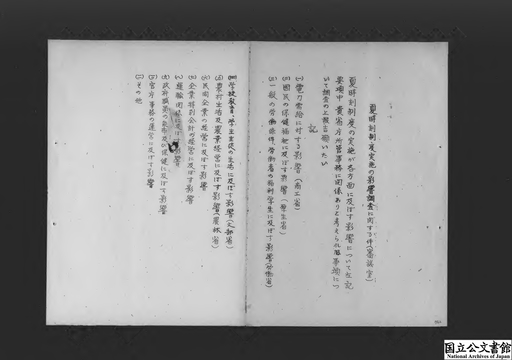 夏時刻制度実施の影響調査に関する件(審議室)
夏時刻制度の実施が各方面に及ぼす影響について左記
要項中貴省方所管事務に関係ありと考えられる事項につ
いて調査の上報告願いたい
記
(1) 電力需給に対する影響(商工省)
(2) 国民の保健福祉に及ぼす影響(厚生省)
(3) 一般の労働条件、労働者の福利厚生に及ぼす影響(労働省)
(4) 学校教育、学生生徒の生活に及ぼす影響(文部省)
(5) 農村生活及農業経営に及ぼす影響(農林省)
(6) 民間企業の経営に及ぼす影響
(7) 企業特別会計の経営に及ぼす影響
運輸関係に及ぼす影響
政府職員の勤務及び保健に及ぼす影響
官庁事務の運営に及ぼす影響
その他
国立公文書館
National Archives of Japan